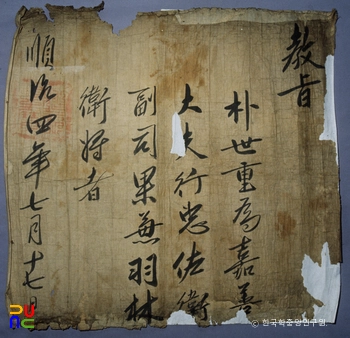 教旨
朴世重為嘉善
大夫行忠佐衛
副司果兼羽林
衛將者
順治四年七月十七日
© 한국학중앙연구원